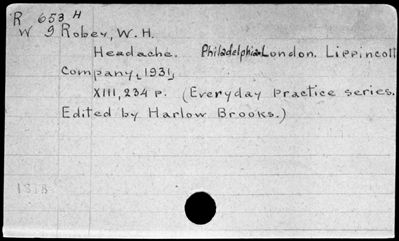 R 653 H
W 9 Robey, W. H.
Headache. Philadelphia London. Lippincott
Company, 1931,
XIII, 234 p. (Everyday practice series.
Edited by Harlow Brooks.)